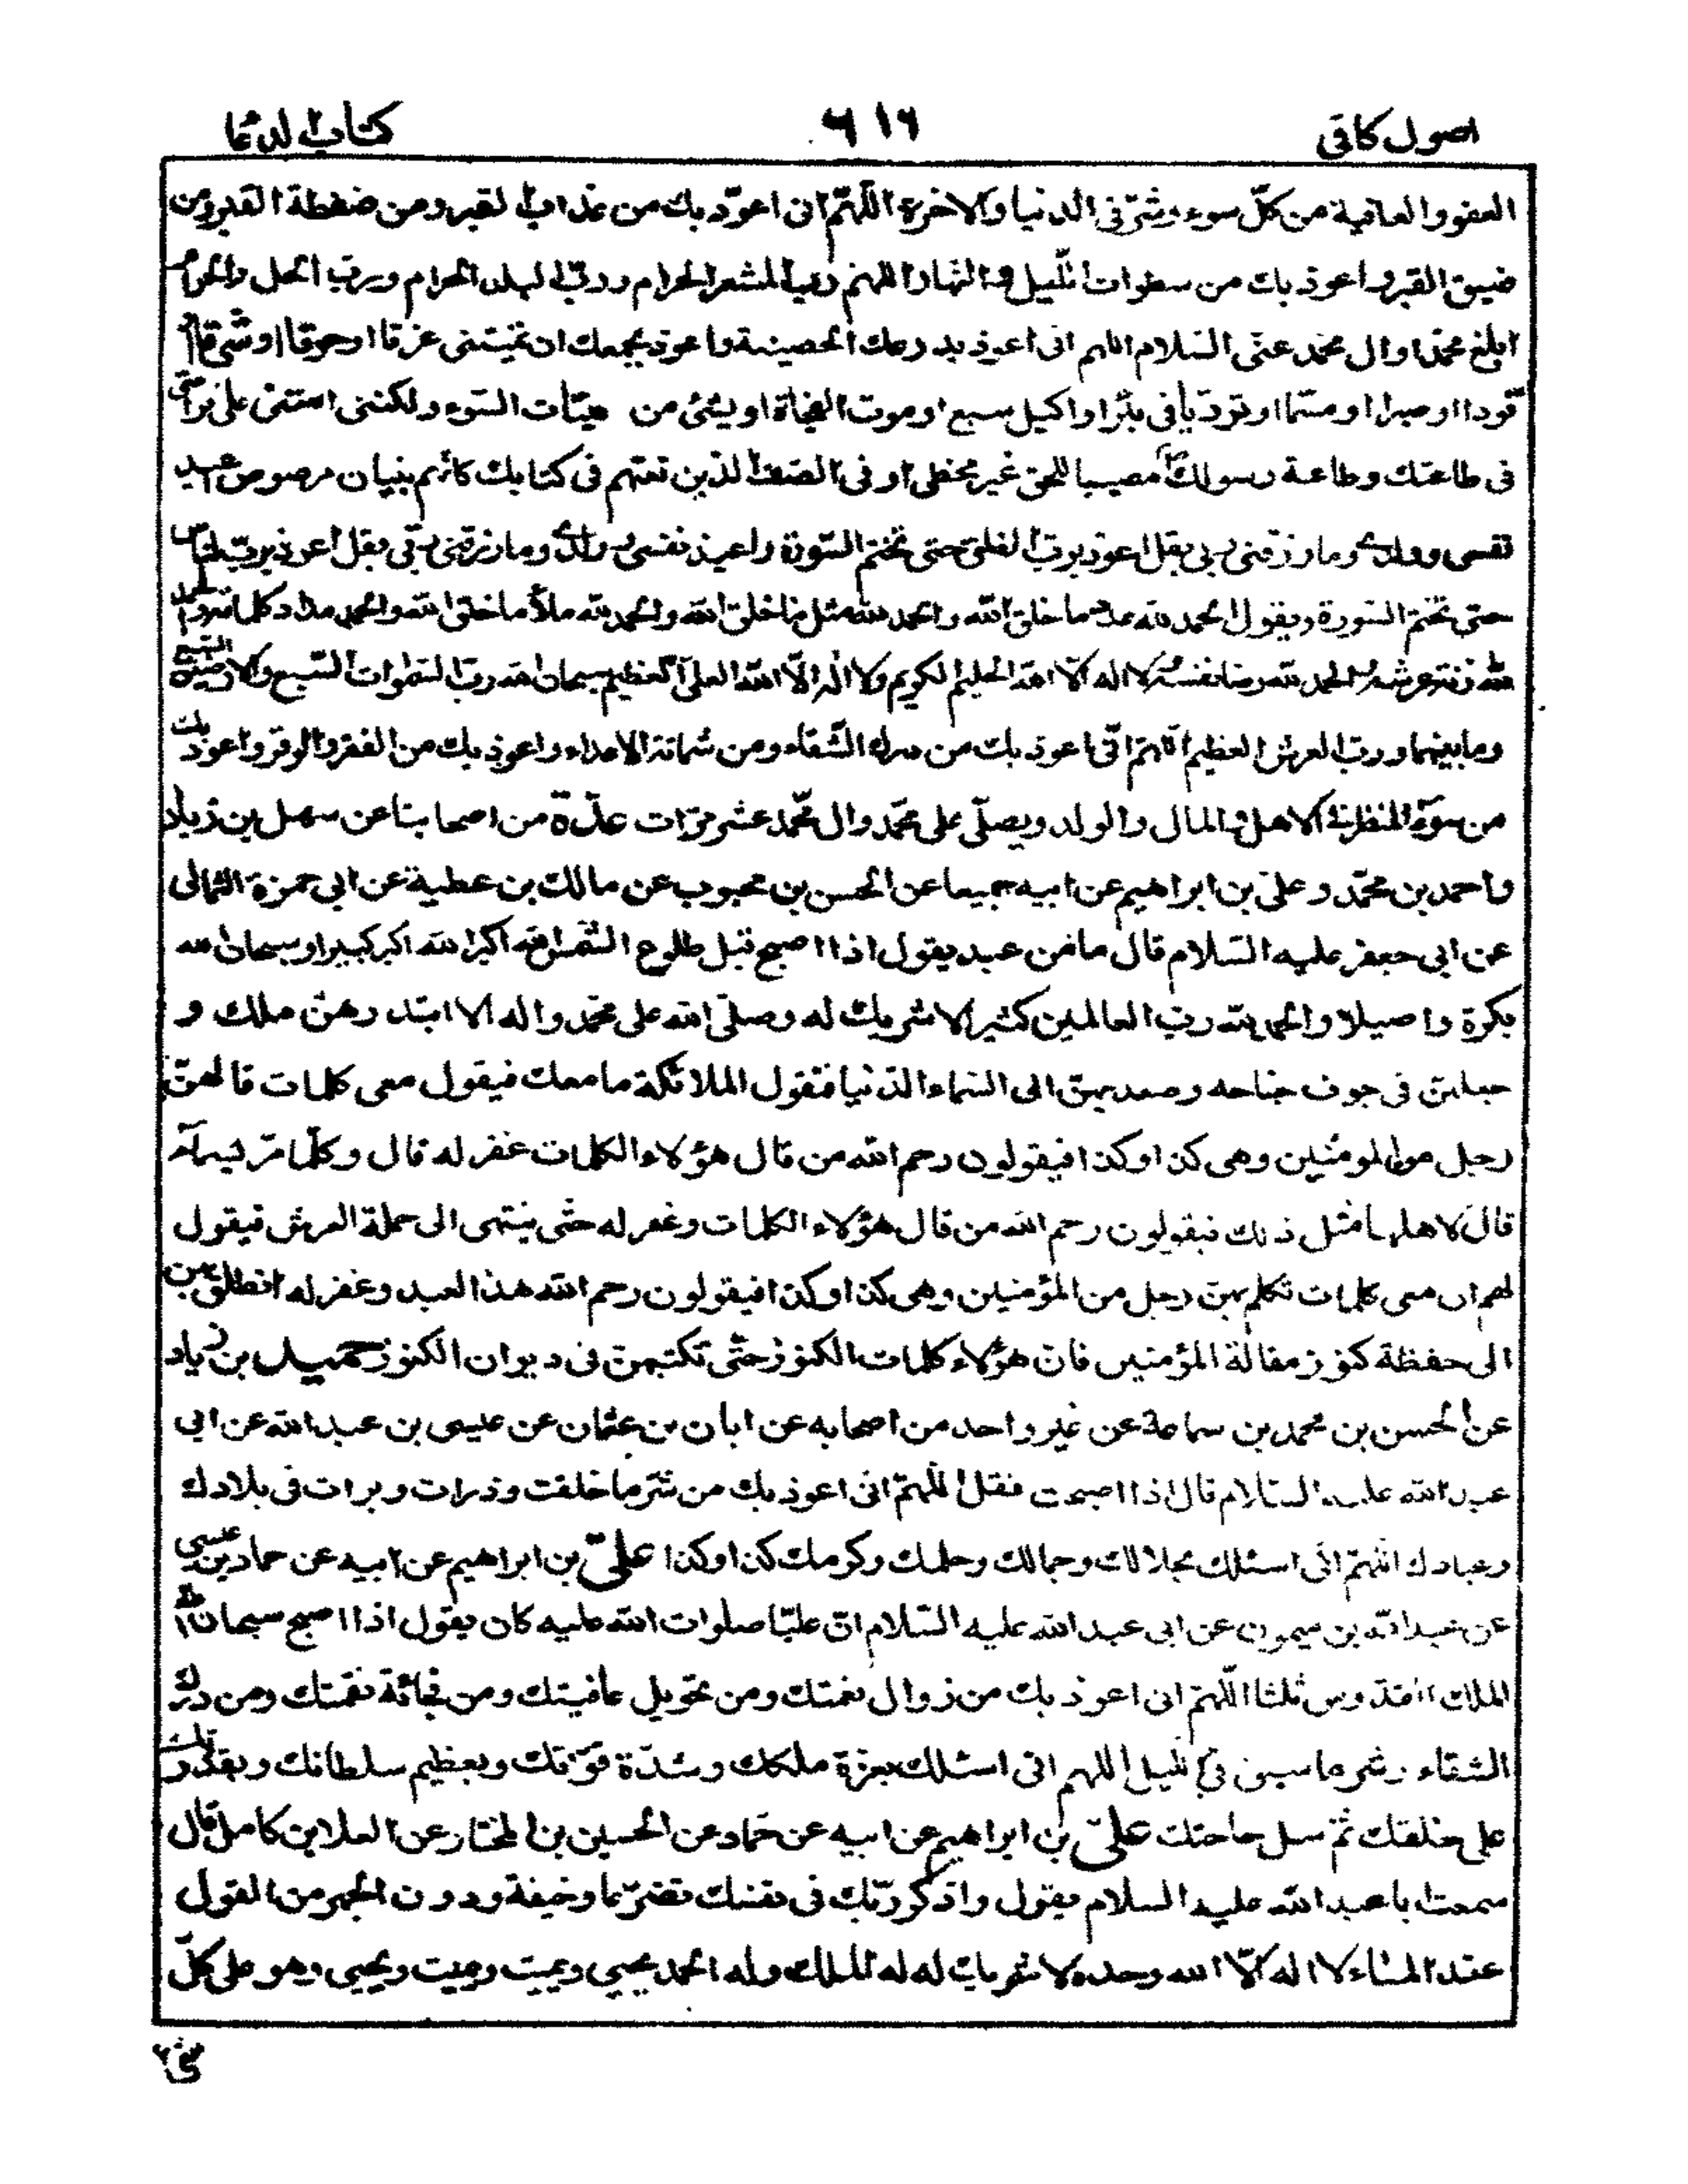 اصول كافى ٦١٦ كتاب الدعا
العفو والعافية من كلّ سوء وشرّ فى الدنيا والاخرة اللّهمّ انى اعوذ بك من عذاب القبر ومن ضغطة القبر ومن
ضيق القبر واعوذ بك من سطوات اللّيل والنّهار اللهم ربّ المشعر الحرام وربّ البلد الحرام وربّ الحل والحرام
ابلغ محمّدا وال محمّد عنّى السّلام اللهم انى اعوذ بدرعك الحصينة واعوذ بجمعك ان تميتنى غرقا او حرقا او شرقا او
قودا او صبرا او مسمّا او تردّيا فى بئر او اكيل سبع او موت الفجأة او بشىء من ميتات السّوء ولكننى امتنى على فراشى
فى طاعتك وطاعة رسولك مصيبا للحق غير مخطى او فى الصّفّ الذين نعتّهم فى كتابك كانّهم بنيان مرصوص اعيذ
نفسى وولدى وما رزقنى ربى بقل اعوذ بربّ الفلق حتى تختم السّورة واعيذ نفسى وولدى وما رزقنى ربّى بقل اعوذ بربّ النّاس
حتى تختم السّورة ويقول الحمد لله عدد ما خلق الله والحمد لله مثل ما خلق الله والحمد لله ملأ ما خلق الله والحمد لله مداد كلماته والحمد
لله زنة عرشه والحمد لله رضا نفسه ولا اله الّا الله الحليم الكريم ولا اله الّا الله العلىّ العظيم سبحان الله ربّ السّموات السّبع والارضين السّبع
وما بينهما وربّ العرش العظيم اللّهمّ انّى اعوذ بك من درك الشّقاء ومن شماتة الاعداء واعوذ بك من الفقر والوقر واعوذ بك
من سوء المنظر فى الاهل والمال والولد ويصلّى على محمّد وال محمّد عشر مرّات عدّة من اصحابنا عن سهل بن زياد
واحمد بن محمّد وعلىّ بن ابراهيم عن ابيه جميعا عن الحسن بن محبوب عن مالك بن عطية عن ابى حمزة الثمالى
عن ابى جعفر عليه السّلام قال ما من عبد يقول اذا اصبح قبل طلوع الشّمس الله اكبر الله اكبر كبيرا وسبحان الله
بكرة واصيلا والحمد لله ربّ العالمين كثيرا لا شريك له وصلّى الله على محمّد واله الا ابتدرهنّ ملك و
جعلهنّ فى جوف جناحه وصعد بهنّ الى السّماء الدّنيا فتقول الملائكة ما معك فيقول معى كلمات قالهنّ
رجل من المومنين وهى كذا وكذا فيقولون رحم الله من قال هؤلاء الكلمات غفر له قال وكلّما مرّ بسماء
قال لاهلها مثل ذلك فيقولون رحم الله من قال هؤلاء الكلمات وغفر له حتّى ينتهى الى حملة العرش فيقول
لهم ان معى كلمات تكلّم بهنّ رجل من المؤمنين وهى كذا وكذا فيقولون رحم الله هذا العبد وغفر له انطلق بهن
الى حفظة كنوز مقالة المؤمنين فانّ هؤلاء كلمات الكنوز حتّى تكتبهنّ فى ديوان الكنوز حميد بن زياد
عن الحسن بن محمد بن سماعة عن غير واحد من اصحابه عن ابان بن عثمان عن عيسى بن عبدالله عن ابى
عبدالله عليه السّلام قال اذا اصبحت فقل اللّهمّ انى اعوذ بك من شرّ ما خلقت وذرات وبرات فى بلادك
وعبادك اللّهمّ انّى اسئلك بجلالك وجمالك وحلمك وكرمك كذا وكذا علىّ بن ابراهيم عن ابيه عن حماد بن عيسى
عن عبدالله بن ميمون عن ابى عبدالله عليه السّلام انّ عليّا صلوات الله عليه كان يقول اذا اصبح سبحان الله
الملك القدّوس ثلثا اللّهمّ انى اعوذ بك من زوال نعمتك ومن تحويل عافيتك ومن فجائة نقمتك ومن درك
الشقاء وشر ما سبق فى اللّيل اللهم انى اسئلك بعزة ملكك وشدّة قوّتك وبعظيم سلطانك وبقدرتك
على خلقك ثمّ سل حاجتك علىّ بن ابراهيم عن ابيه عن حمّاد عن الحسين بن المختار عن العلا بن كامل قال
سمعت ابا عبدالله عليه السلام يقول واذكر ربّك فى نفسك تضرّعا وخيفة ودون الجهر من القول
عند المساء لا اله الّا الله وحده لا شريك له له الملك وله الحمد يحيى ويميت ويميت ويحيى وهو على كلّ
شئ